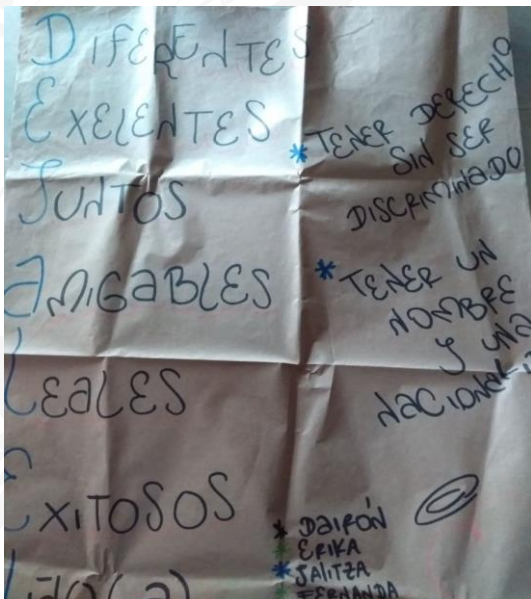 DIFERENTES
EXELENTES
JUNTOS
AMIGABLES
LEALES
EXITOSOS
* TENER DERECHO
SIN SER
DISCRIMINADO
* TENER UN
NOMBRE
Y UNA
* DAIRÓN
* ERIKA
* JALITZA
* FERNANDA